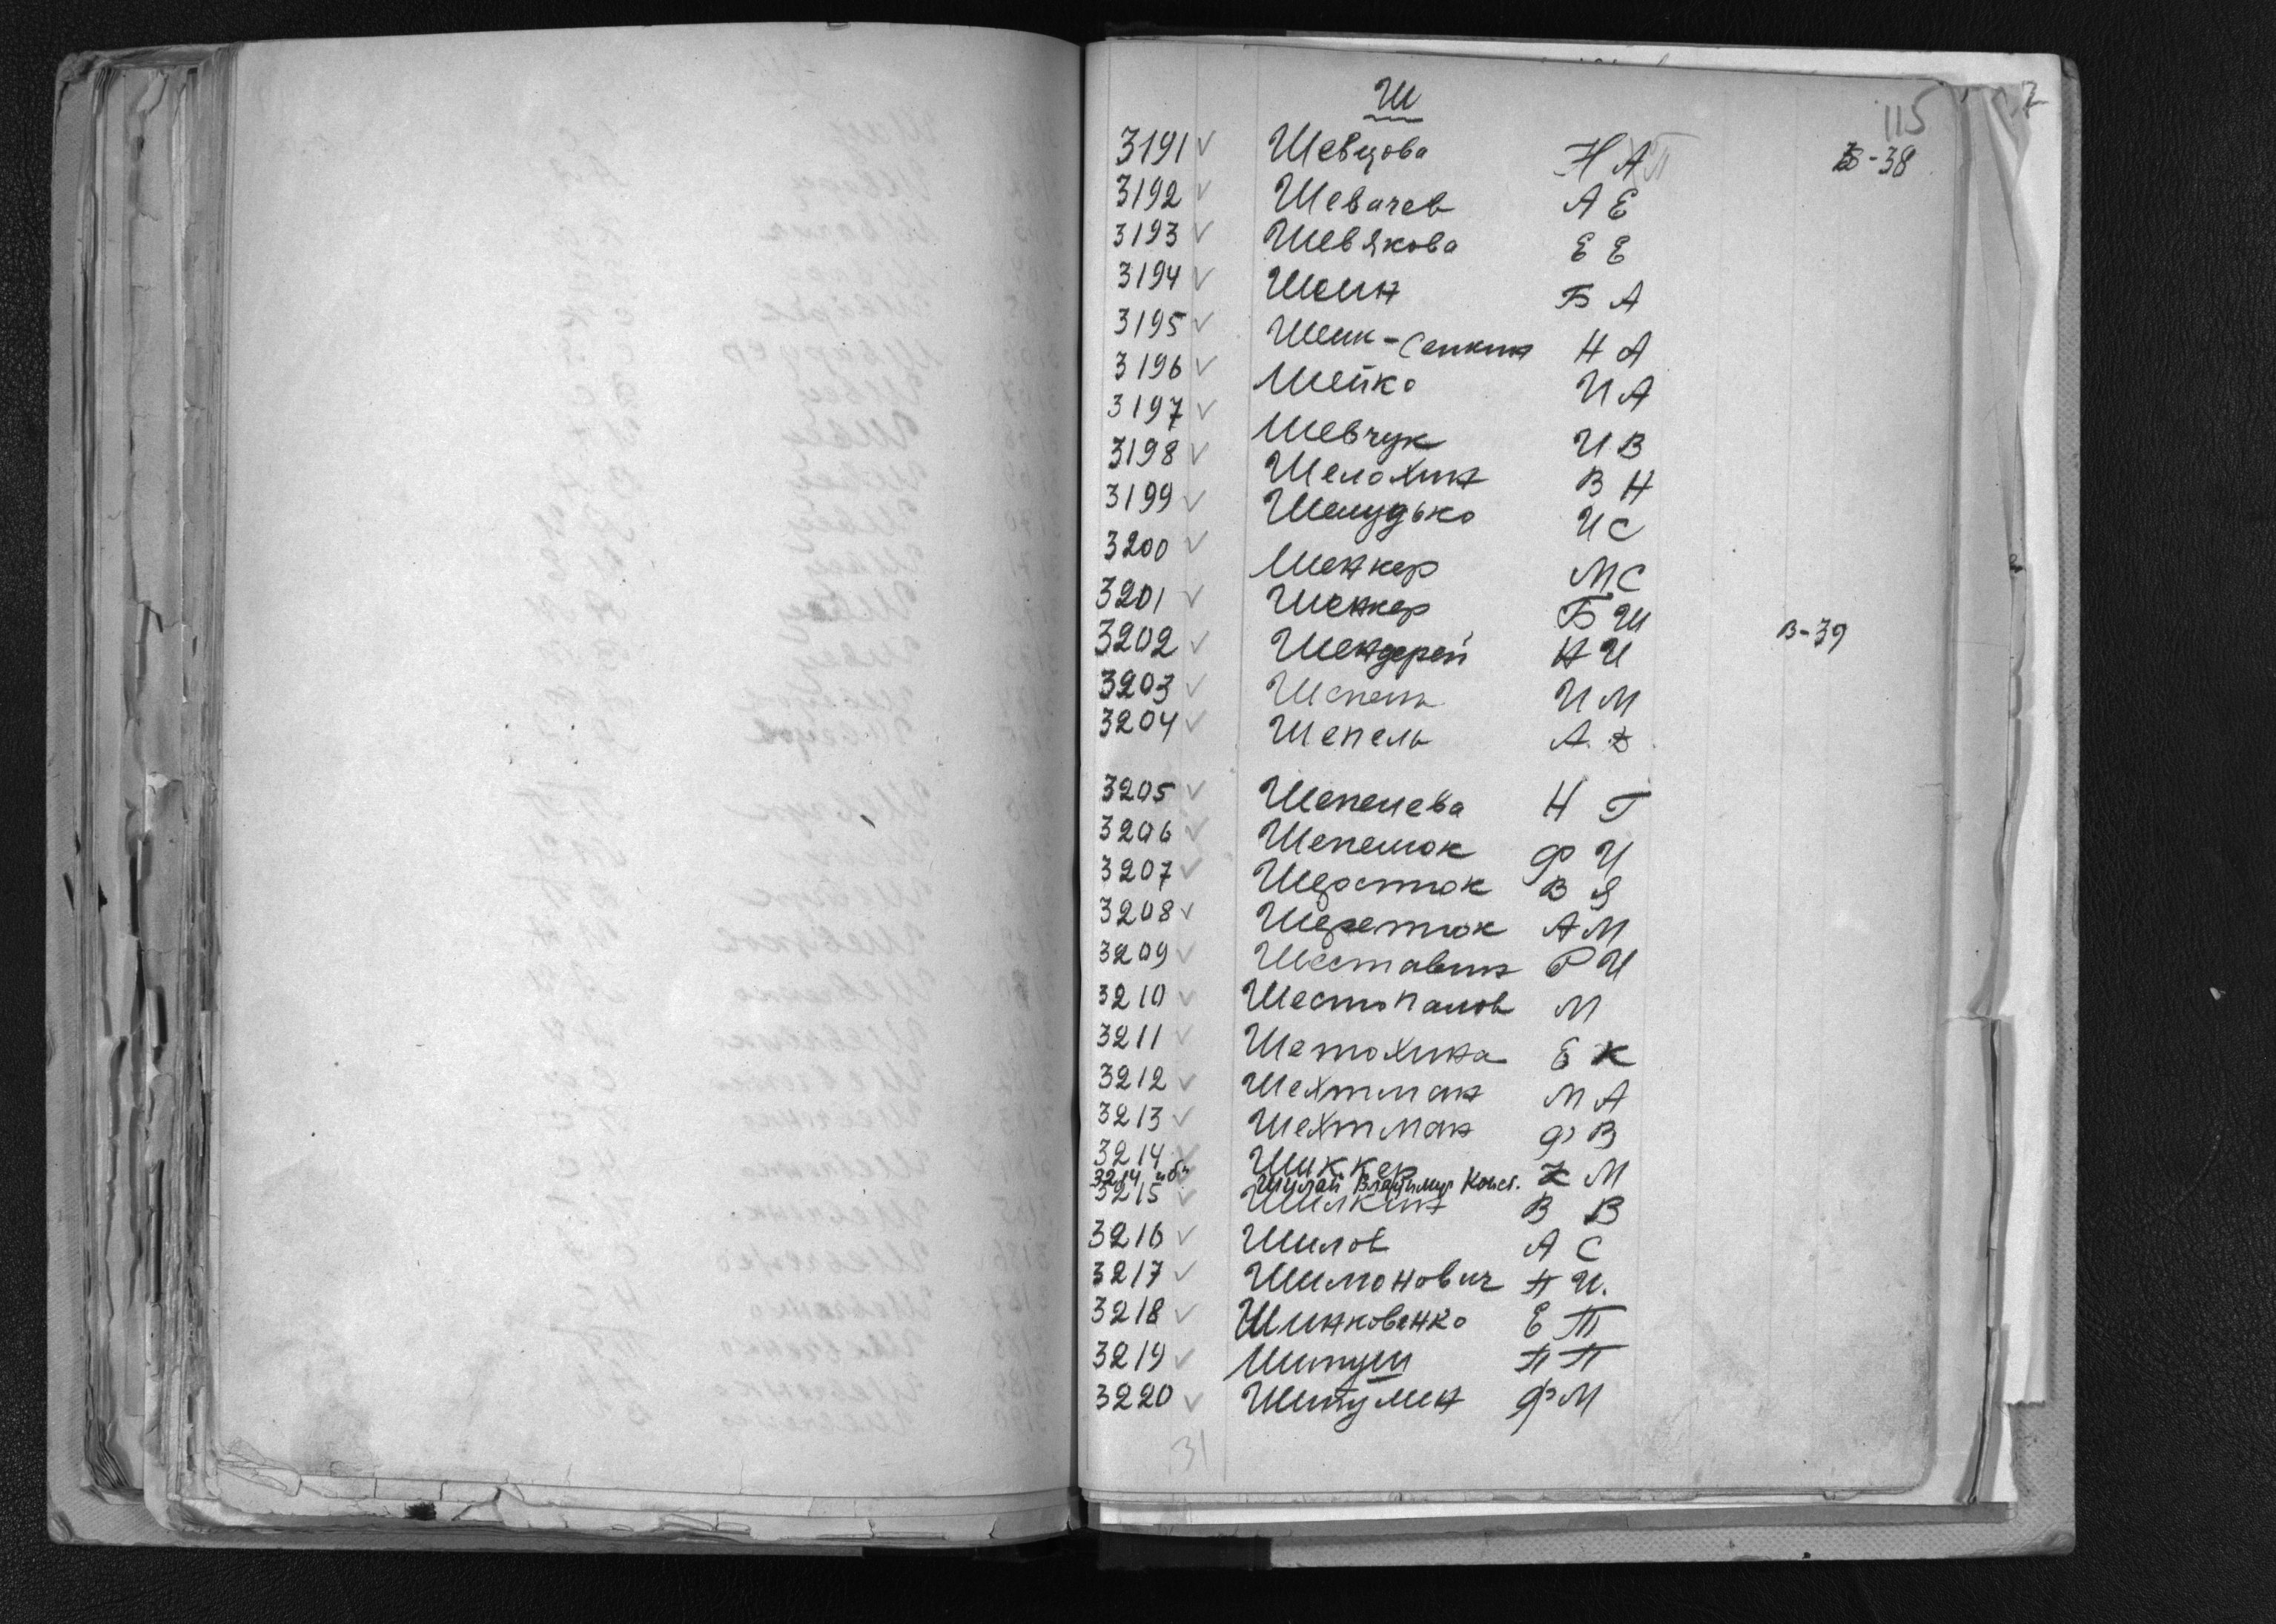 Ш
115
3191 ✓ Шевцова Н А П В-38
3192 ✓ Шевачев А Е
3193 ✓ Шевякова Е Е
3194 ✓ Шеин Б А
3195 ✓ Шеик-Сенкин Н А
3196 ✓ Шейко И А
3197 ✓ Шевчук И В
3198 ✓ Шелохин В Н
3199 ✓ Шелудько И С
3200 ✓ Шенкер М С
3201 ✓ Шенкер Б Ш
3202 ✓ Шендерей Н И В-39
3203 ✓ Шепель И М
3204 ✓ Шепель А.
3205 ✓ Шепелева Н Г
3206 ✓ Шепелюк Ф И
3207 ✓ Шерстюк В Я
3208 ✓ Шеретюк А М
3209 ✓ Шеставин Р И
3210 ✓ Шестопалов М
3211 ✓ Шетохина Е К
3212 ✓ Шехтман М А
3213 ✓ Шехтман Ф В
3214 ✓ Шиккер М
3214 "б" Шилай Владимир Конст.
3215 ✓ Шилкин В В
3216 ✓ Шилов А С
3217 ✓ Шимонович П И.
3218 ✓ Шинковенко Е Т
3219 ✓ Шипуш П П
3220 ✓ Шипулин Ф М
31